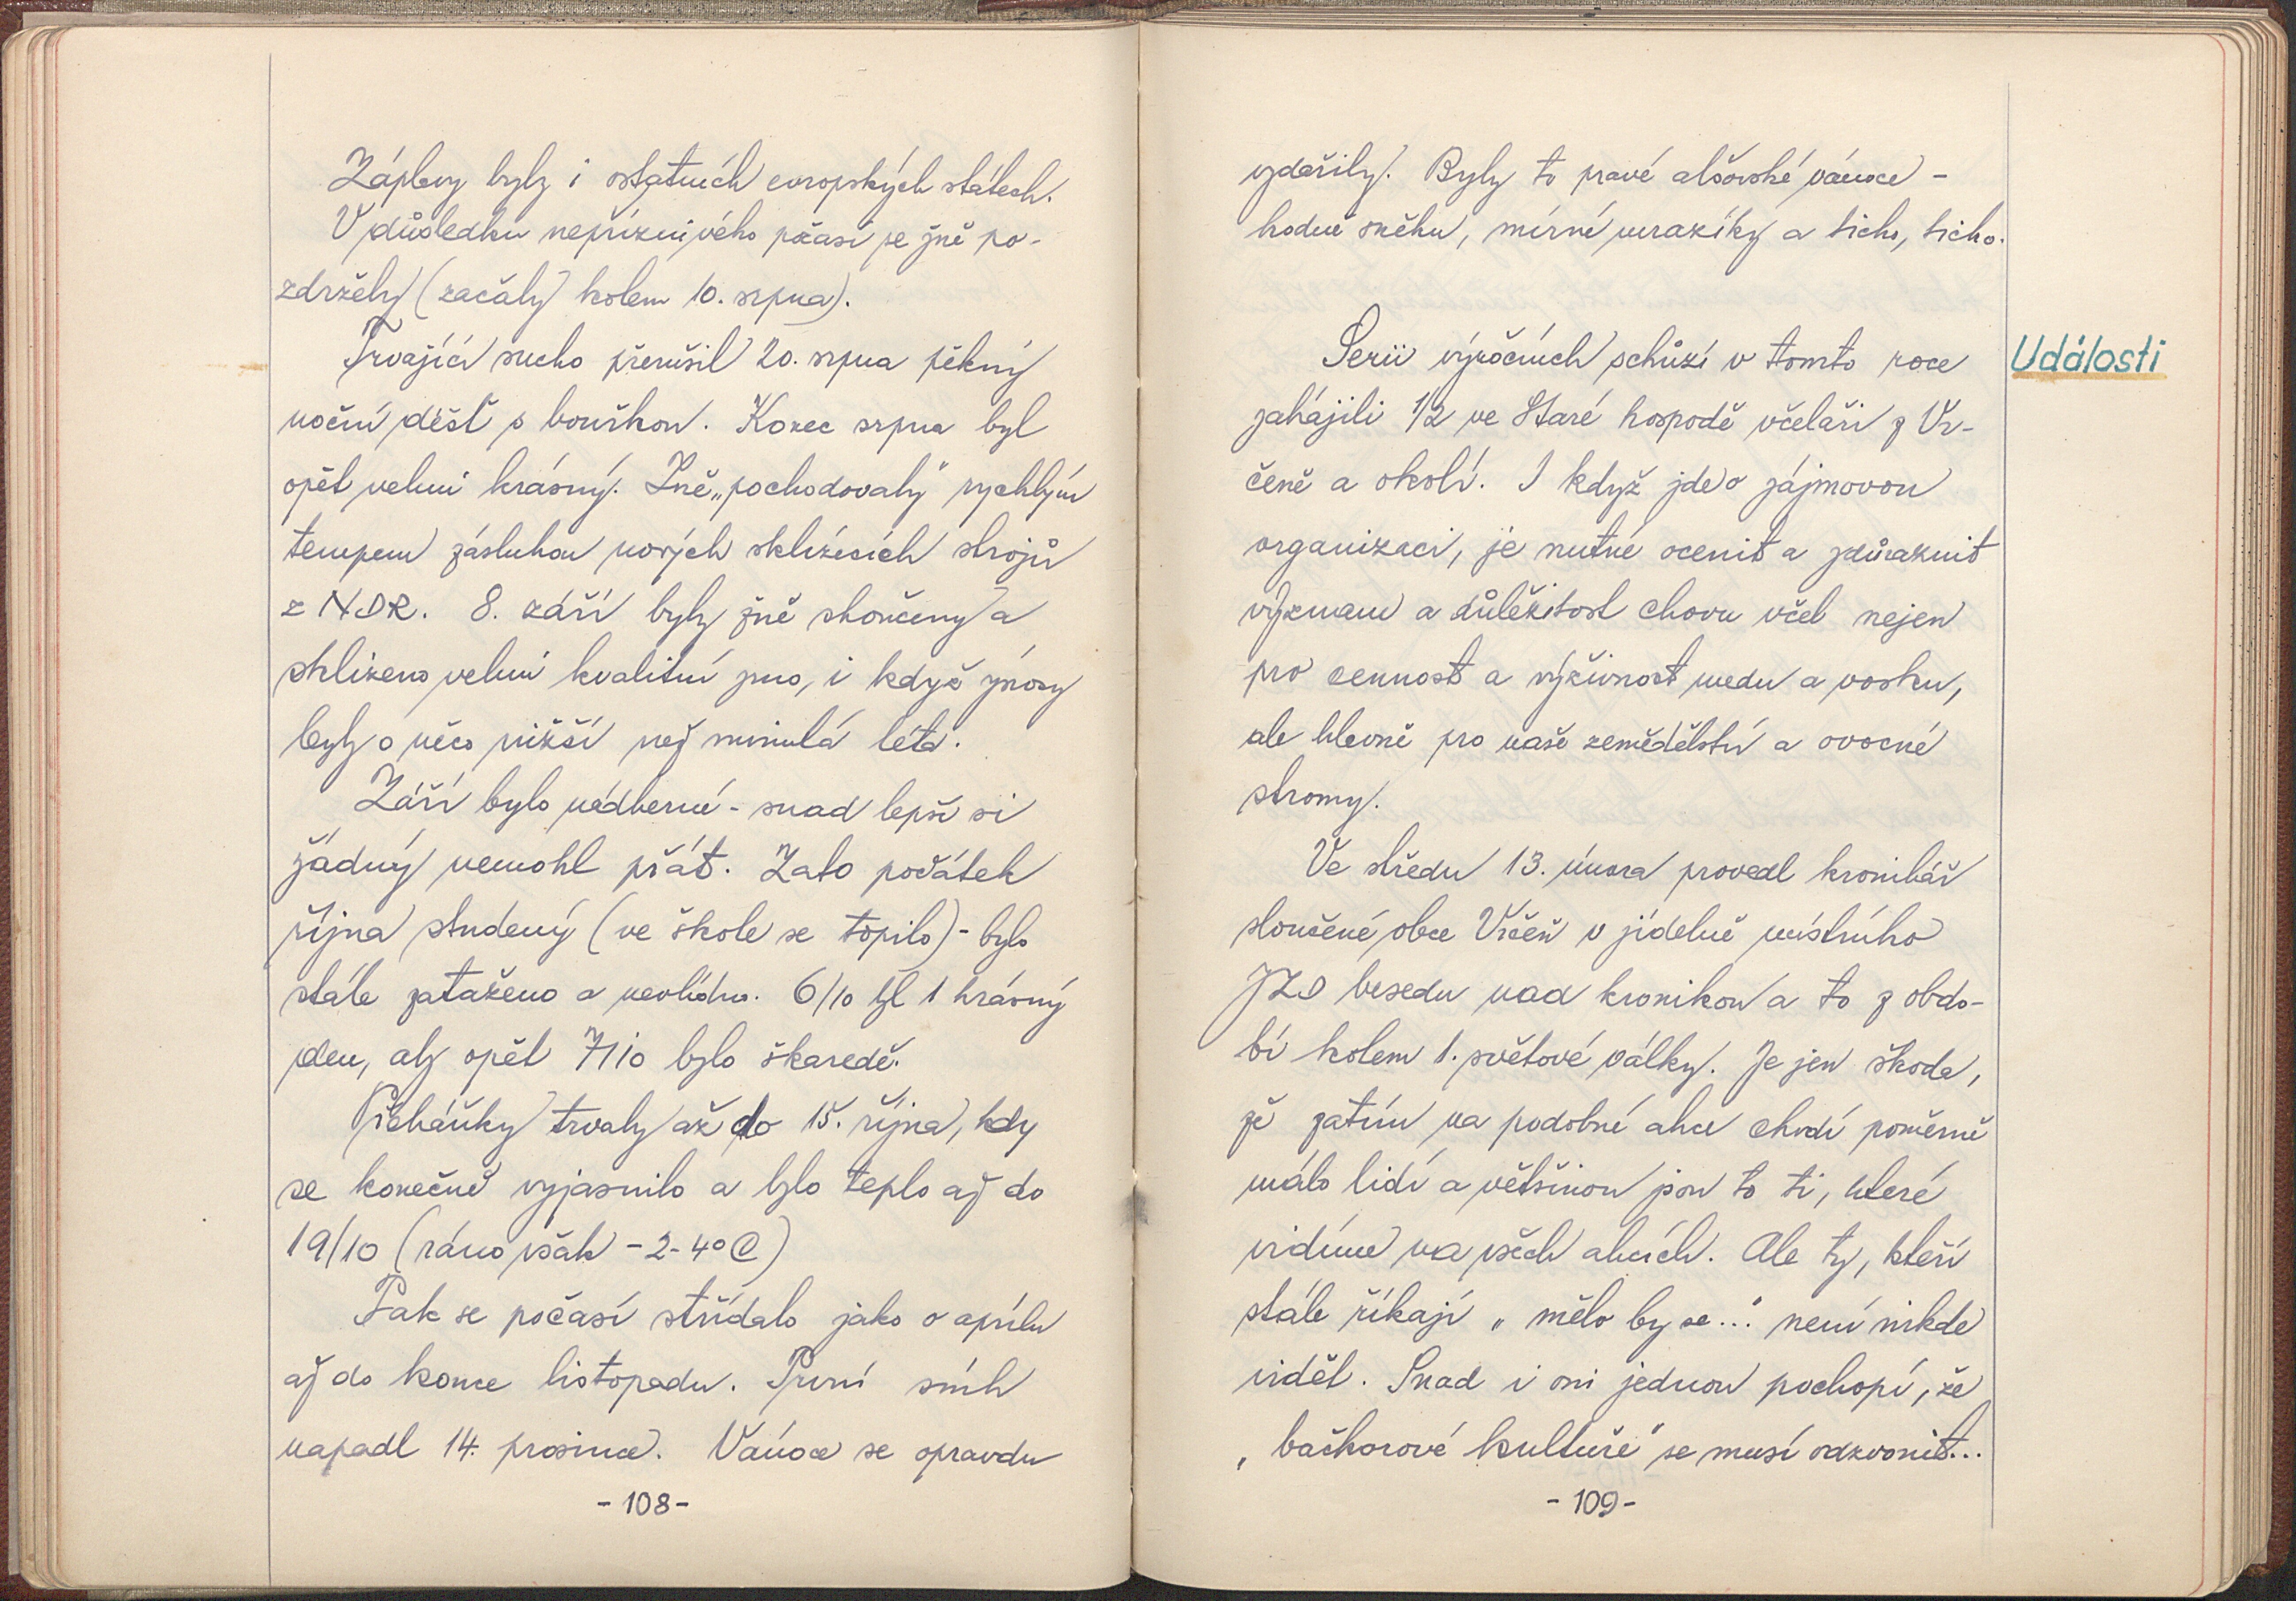 Záplavy byly i ostatních evropských státech.
V důsledku nepříznivého počasí se žně po-
zdržely (začaly kolem 10. srpna).
Trvající sucho přerušil 20. srpna pěkný
noční déšť s bouřkou. Konec srpna byl
opět velmi krásný. Žně „pochodovaly" rychlým
tempem zásluhou nových sklízecích strojů
z NDR. 8. září byly žně skončeny a
sklizeno velmi kvalitní zrno, i když výnosy
byly o něco nižší než minulá léta.
Září bylo nádherné - snad lepší si
žádný nemohl přát. Zato počátek
října studený (ve škole se topilo) - bylo
stále zataženo a nevlídno. 6/10 byl 1 krásný
den, aby opět 7/10 bylo škaredě.
Plískanky trvaly až do 15. října, kdy
se konečně vyjasnilo a bylo teplo až do
19/10 (ráno však -2-4°C)
Pak se počasí střídalo jako v aprílu
až do konce listopadu. První sníh
napadl 14. prosince. Vánoce se opravdu
-108-
vydařily. Byly to pravé alšovské vánoce -
hodně sněhu, mírné mrazíky a ticho, ticho.
Události
Serii výročních schůzí v tomto roce
zahájili 1/2 ve Staré hospodě včelaři z Vr-
čeně a okolí. I když jde o zájmovou
organizaci, je nutné ocenit a zdůraznit
význam a důležitost chovu včel nejen
pro cennost a výživnost medu a vosku,
ale hlavně pro naše zemědělství a ovocné
stromy.
Ve středu 13. února provedl kronikář
sloučené obce Vrčeň v jídelně místního
JZD besedu nad kronikou a to z obdo-
bí kolem 1. světové války. Je jen škoda,
že zatím na podobné akce chodí poměrně
málo lidí a většinou jsou to ti, které
vidíme na všech akcích. Ale ty, kteří
stále říkají „mělo by se..." není nikde
vidět. Snad i oni jednou pochopí, že
„bačkorové kultuře" se musí odzvonit...
-109-